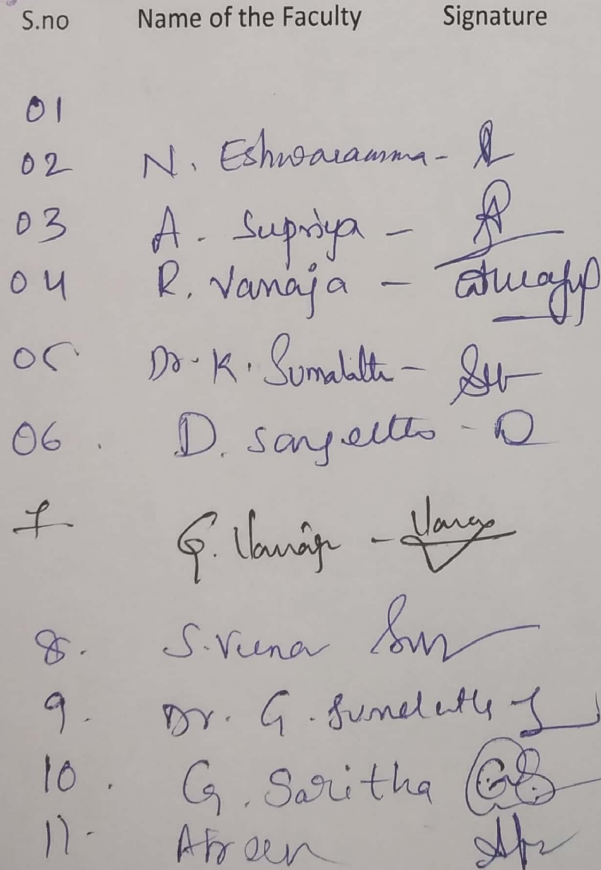 S.no Name of the Faculty Signature
01
02 N. Eshwaramma -
03 A. Supriya -
04 R. Vanaja -
05 Dr. K. Sumalatha -
06. D. Sangeetha -
7 G. Vanaja -
8. S. Veena
9. Dr. G. Sunelatha
10. G. Saritha GS
11. Afreen Afr